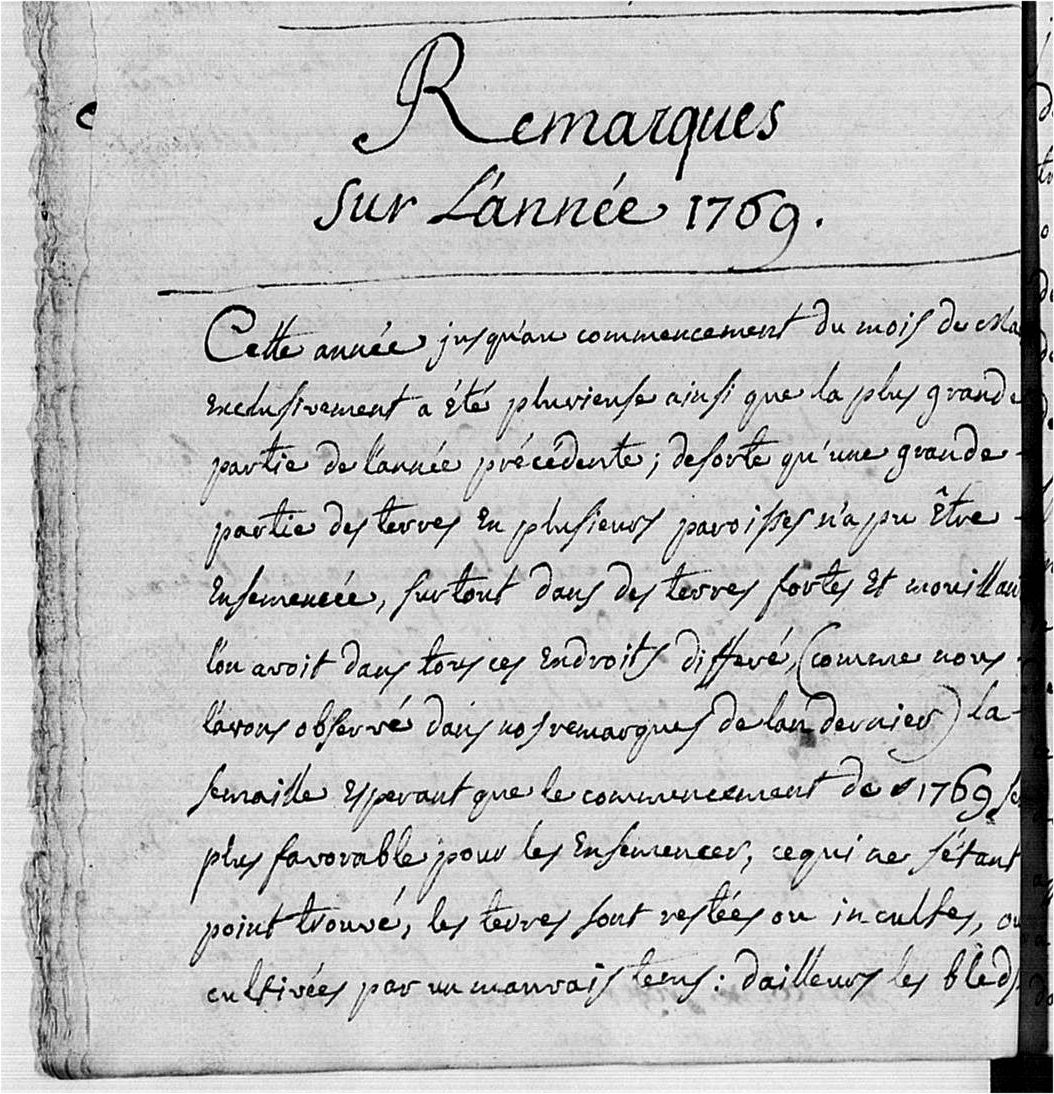 Remarques
sur L'année 1769.
Cette année jusqu'au commencement du mois de Ma
exclusivement a été pluvieuse ainsi que la plus grande
partie de l'année précédente ; desorte qu'une grande
partie des terres en plusieurs paroisses n'a pu être
Ensemencée, surtout dans des terres fortes et mouillan
l'on avoit dans tous ces endroits differé, (comme nous
l'avons observé dans nos remarques de lan dernier) la
semaille esperant que le commencement de 1769 se
plus favorable pour les Ensemencer, cequi ne s'étant
point trouvé, les terres sont restées ou incultes, ou
cultivées par un mauvais tems : dailleurs les bleds